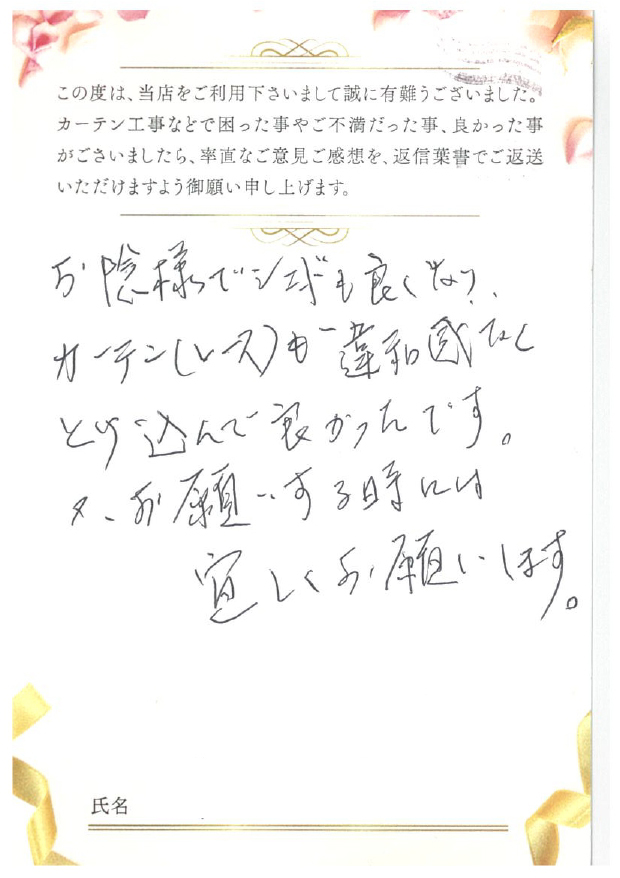 この度は、当店をご利用下さいまして誠に有難うございました。
カーテン工事などで困った事やご不満だった事、良かった事
がございましたら、率直なご意見ご感想を、返信葉書でご返送
いただけますよう御願い申し上げます。
お陰様で も良くなり、
カーテン(レース)も 違和感なく
とけ込んで良かったです。
又、お願いする時には
宜しくお願いします。
氏名